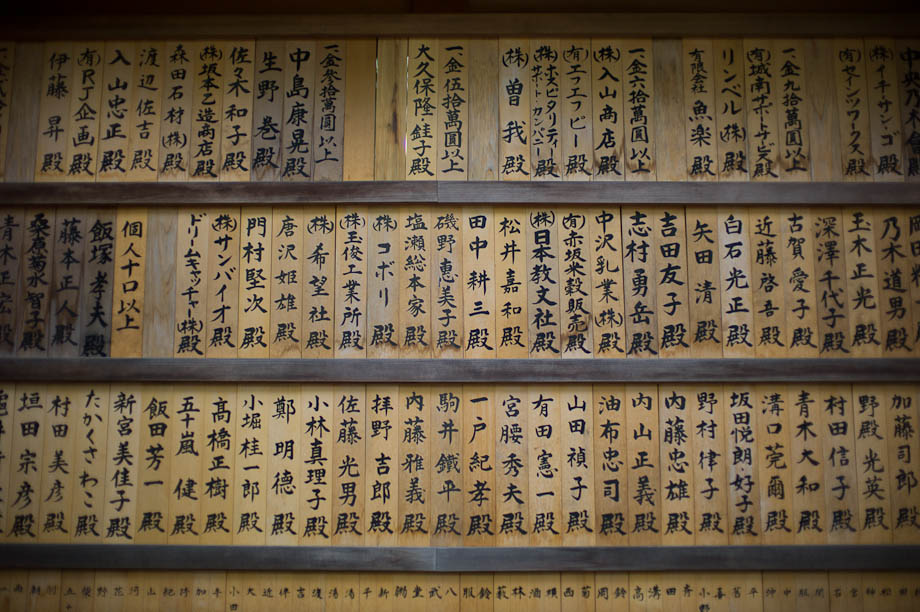 (株)イチサンゴ殿
(有)セーンワークス殿
一、金九拾萬圓以上
(有)城南サポーターズ殿
リンベル(株)殿
有限会社魚楽殿
一、金六拾萬圓以上
(株)入山商店殿
(有)エフエフピー殿
(株)ホスピタリティサポートカンパニー殿
(株)曽我殿
一、金伍拾萬圓以上
大久保隆鮭子殿
一、金参拾萬圓以上
中島康晃殿
生野巻殿
佐々木和子殿
(株)坂本乙造商店殿
森田石材(株)殿
渡辺佐吉殿
入山忠正殿
(有)RJ企画殿
伊藤昇殿
乃木道男殿
玉木正光殿
深澤千代子殿
古賀愛子殿
近藤啓吾殿
白石光正殿
矢田清殿
吉田友子殿
志村勇岳殿
中沢乳業(株)殿
(有)赤坂米穀販売殿
(株)日本教文社殿
松井嘉和殿
田中耕三殿
磯野恵美子殿
塩瀬総本家殿
(株)コボリ殿
(株)玉俊工業所殿
(株)希望社殿
唐沢姫雄殿
門村堅次殿
(株)サンバイオ殿
ドリームキャッチャー(株)殿
個人十口以上
飯塚孝夫殿
藤本正人殿
桑原菊水智子殿
青木正宏殿
加藤司郎殿
野殿光英殿
村田信子殿
青木大和殿
溝口莞爾殿
坂田悦朗・好子殿
野村律子殿
内藤忠雄殿
内山正義殿
油布忠司殿
山田禎子殿
有田憲一殿
宮腰秀夫殿
一戸紀孝殿
駒井鐵平殿
内藤雅義殿
拝野吉郎殿
佐藤光男殿
小林真理子殿
鄭明德殿
小堀桂一郎殿
髙橋正樹殿
五十嵐健殿
飯田芳一殿
新宮美佳子殿
たかくさわこ殿
村田美彦殿
垣田宗彦殿